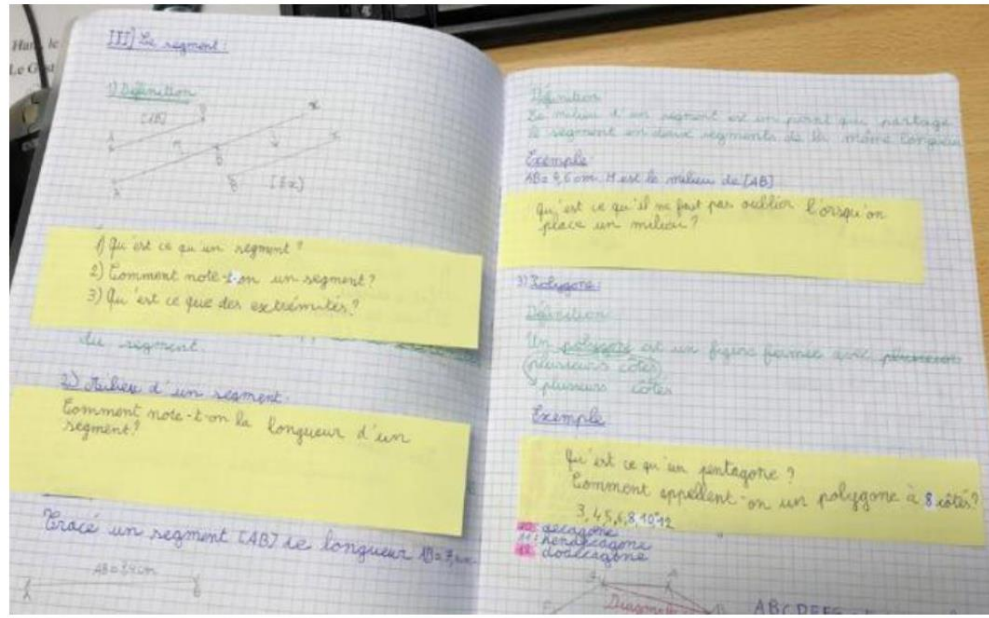 III] Le segment :
1) Définition
[AB]
[Bx)
1) Qu'est ce qu'un segment ?
2) Comment note-t-on un segment ?
3) Qu'est ce que des extrémités ?
du segment.
2) Milieu d'un segment.
Comment note-t-on la longueur d'un
segment ?
Tracé un segment [AB] de longueur
AB = 3,4 cm
Définition
Le milieu d'un segment est un point qui partage
le segment en deux segments de la même longueur
Exemple
AB = 9,6 cm M est le milieu de [AB]
Qu'est ce qu'il ne faut pas oublier l'orsqu'on
place un milieu ?
3) Polygone :
Définition
Un polygone est un figure fermée avec
plusieurs côtés
plusieurs côtés
Exemple
Qu'est ce qu'un pentagone ?
Comment appellent-on un polygone à 8 côtés ?
3, 4, 5, 6, 8, 10, 12
10: décagone
11: hendécagone
12: dodécagone
Diagonale